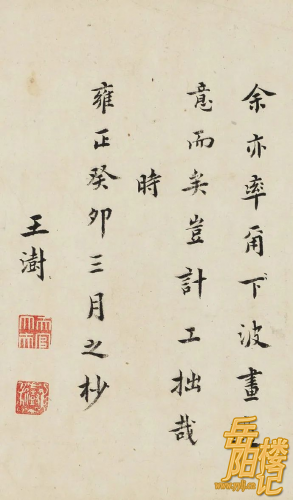 余亦率爾下波畫
意而矣豈計工拙哉
時
雍正癸卯三月之杪
王澍
岳阳楼记